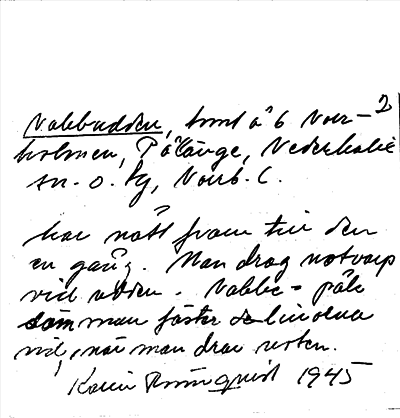 2
Nabbudden, å 6 Norr-
holmen, Pålänge, Nederkalix
sn. o. kg, Norrb. l.
har nått fram till den
en gång. Man drog notvarp
vid udden. Nabbe = påle
som man fäster linorna
vid, när man drar noten.
Karin Rönnquist 1945